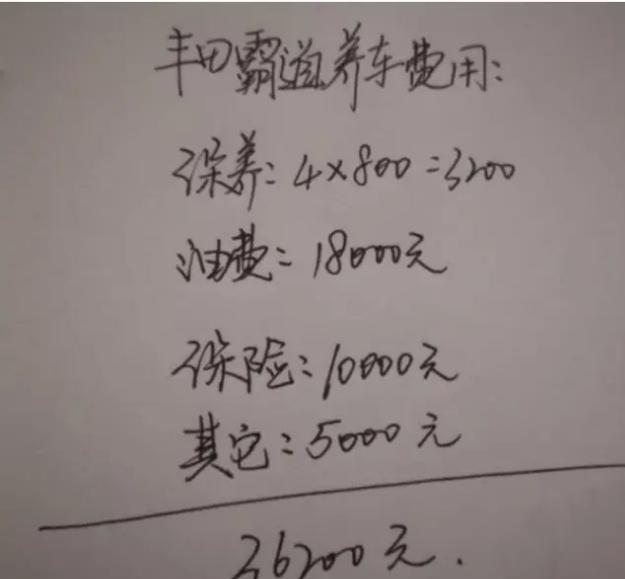 丰田霸道养车费用:
保养: 4×800=3200
油费: 18000元
保险: 10000元
其它: 5000元
36200元.